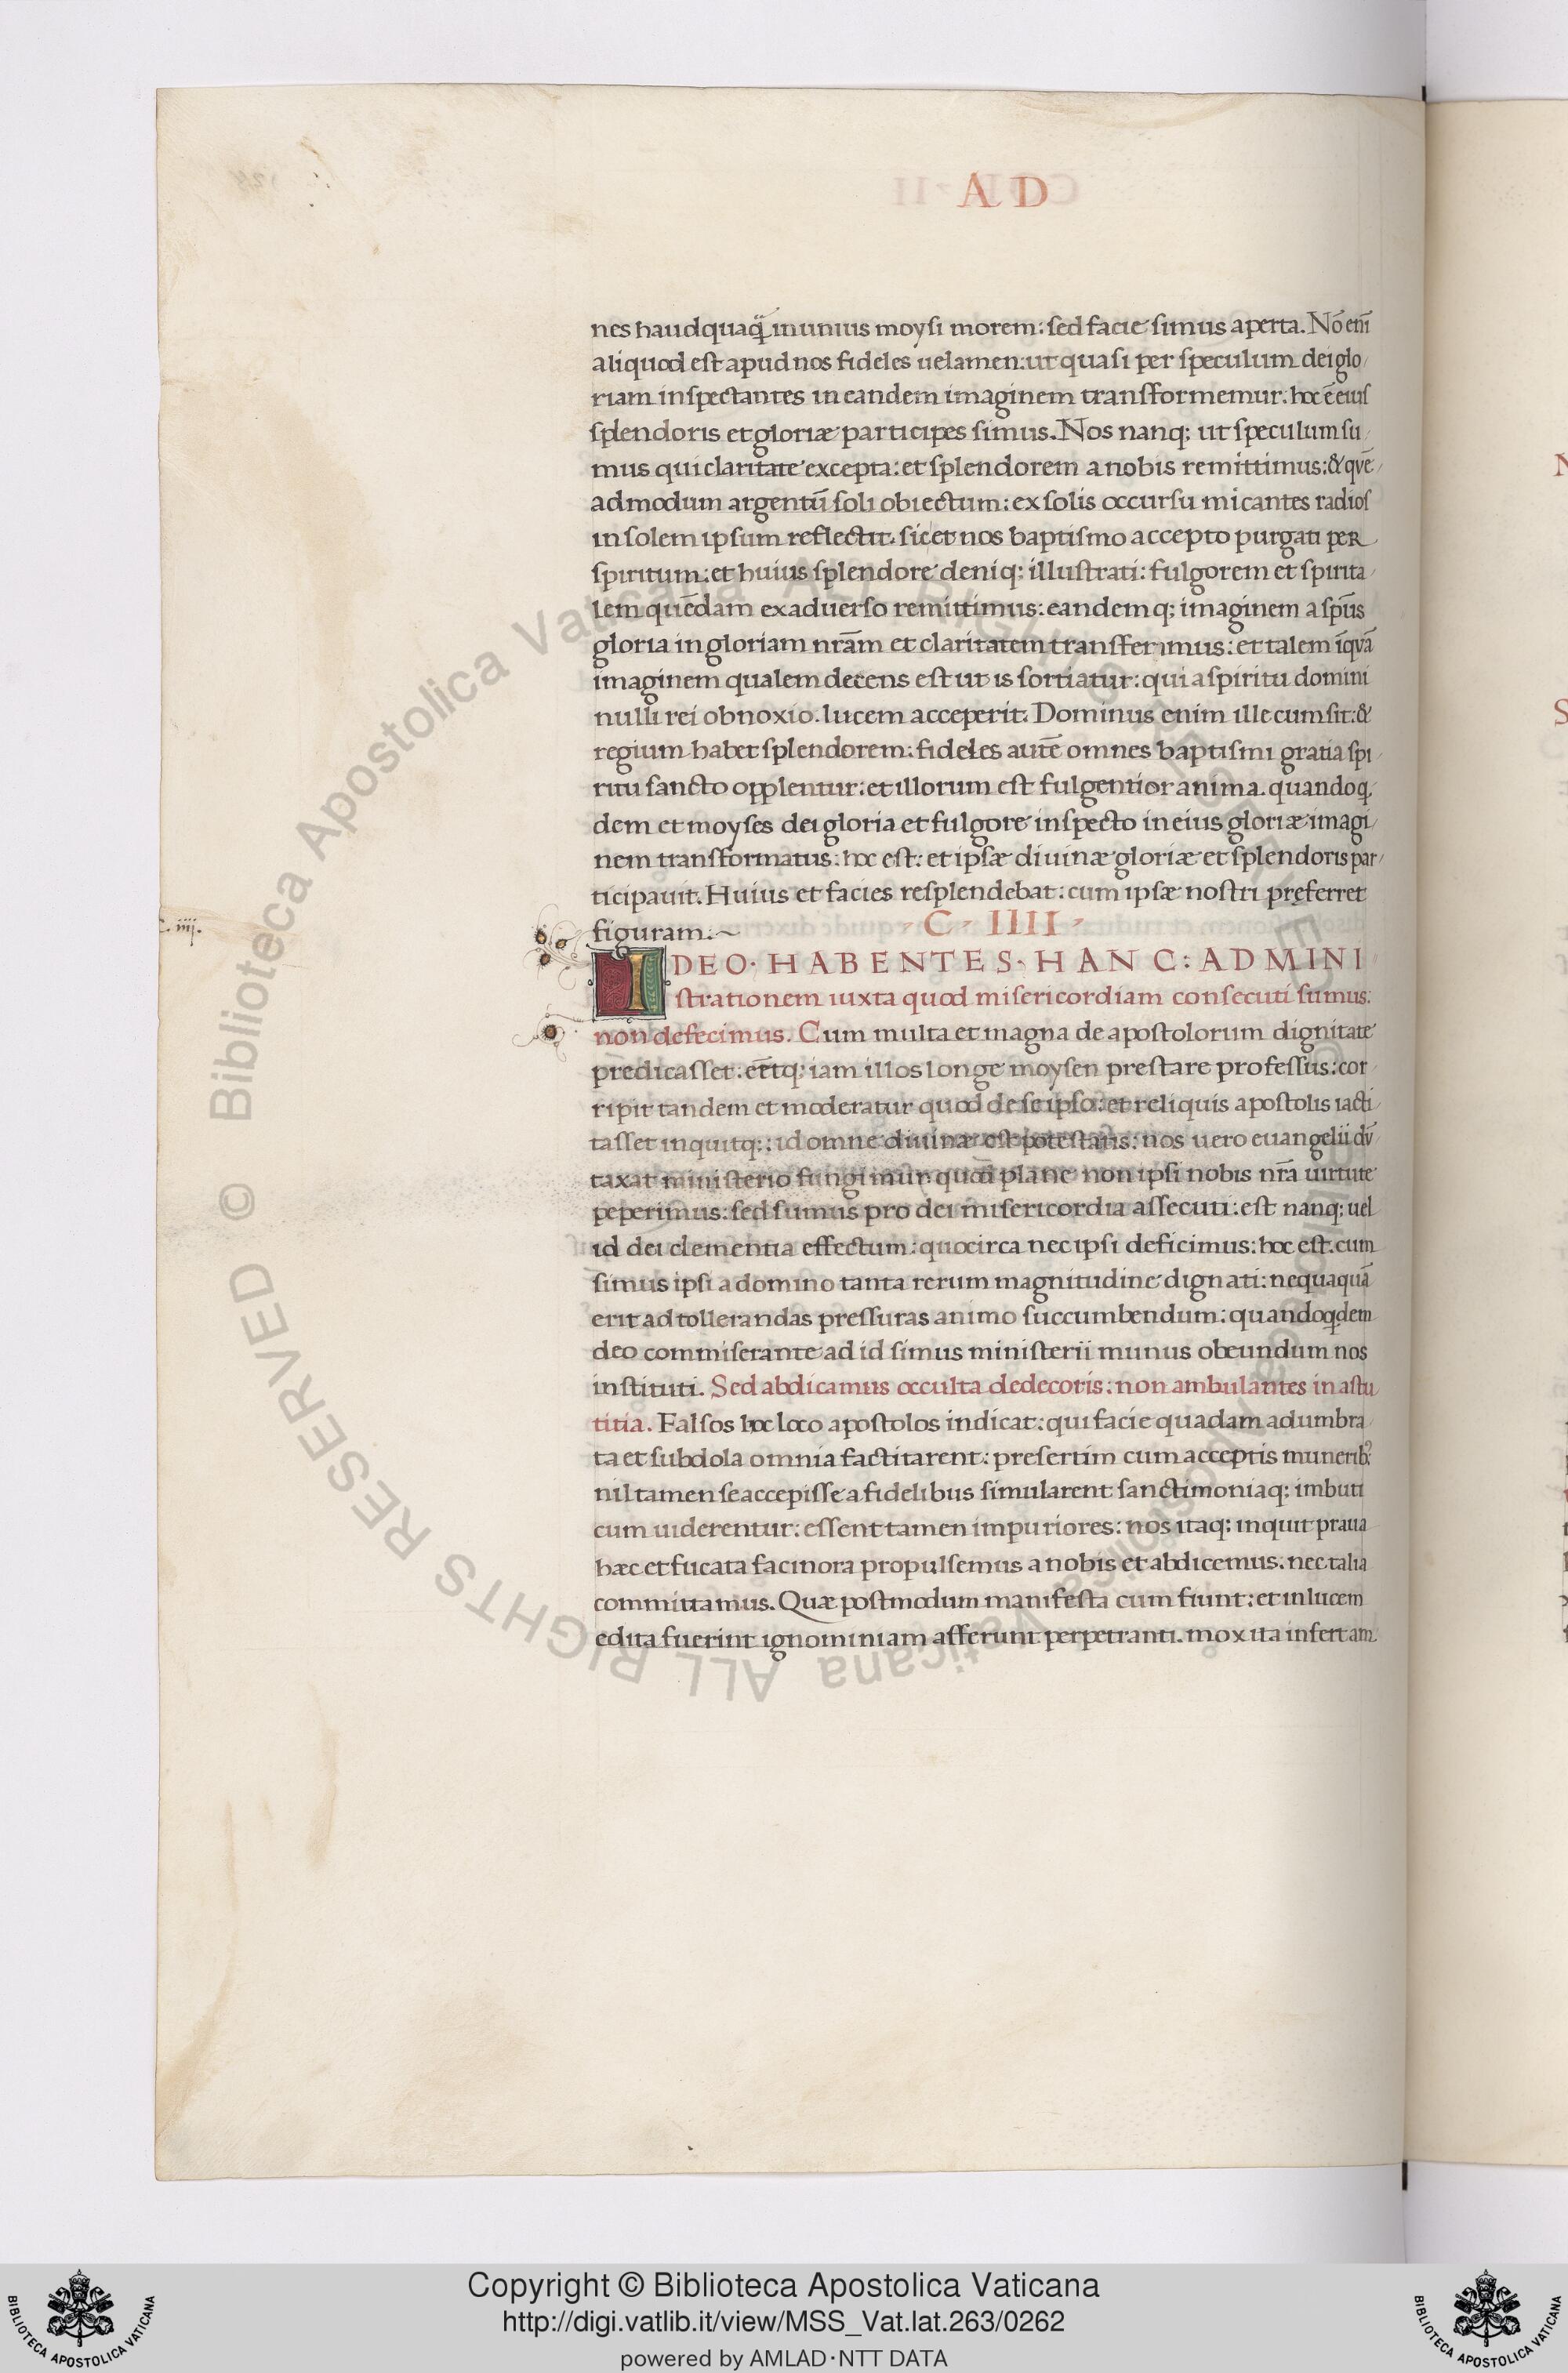 A D
nes haudquaq̃ inunius moysi morem: sed facie simus aperta. Nō eni᷑
aliquod est apud nos fideles uelamen: ut quasi per speculum dei glo
riam inspectantes in eandem imaginem transformemur: hoc ē eius
splendoris et gloriæ participes simus. Nos nanq; ut speculum su
mus qui claritate excepta: et splendorem a nobis remittimus: & quē
admodum argentū soli obiectum: ex solis occursu micantes radios
in solem ipsum reflectit. sic et nos baptismo accepto purgati per
spiritum: et huius splendore deniq; illustrati: fulgorem et spirita
lem quēdam ex aduerso remittimus: eandemq; imaginem a sp̄us
gloria in gloriam nr̄am et claritatem transferimus: et talem īquā
imaginem qualem decens est ut is sortiatur: qui a spiritu domini
nulli rei obnoxio. lucem acceperit. Dominus enim ille cum sit: &
regium habet splendorem: fideles autē omnes baptismi gratia spi
ritu sancto opplentur: et illorum est fulgentior anima. quandoq
dem et moyses dei gloria et fulgore inspecto in eius gloriæ imagi
nem transformatus: hoc est: et ipsæ diuinæ gloriæ et splendoris par
ticipauit. Huius et facies resplendebat: cum ipsæ nostri pręferret
figuram: ~
C · IIII ·
C. iiij.
IDEO · HABENTES · HANC: ADMINI
strationem iuxta quod misericordiam consecuti sumus:
non defecimus. Cum multa et magna de apostolorum dignitate
predicasset: eētq; iam illos longe moysen prestare professus: cor
ripit tandem et moderatur quod de se ipso: et reliquis apostolis iacti
tasset inquitq;: id omne diuinæ est potestatis: nos uero euangelii dū
taxat ministerio fungimur. quod plane non ipsi nobis nr̄a uirtute
peperimus: sed sumus pro dei misericordia assecuti: est nanq; uel
id dei clementia effectum: quocirca nec ipsi deficimus: hoc est. cum
simus ipsi a domino tanta rerum magnitudine dignati: nequaquā
erit ad tollerandas pressuras animo succumbendum: quandoqdem
deo commiserante ad id simus ministerii munus obeundum nos
instituti. Sed abdicamus occulta dedecoris: non ambulantes in astu
titia. Falsos hoc loco apostolos indicat: qui facie quadam adumbra
ta et subdola omnia factitarent: presertim cum acceptis munerib;
nil tamen se accepisse a fidelibus simularent sanctimoniaq; imbuti
cum uiderentur: essent tamen impuriores: nos itaq; inquit praua
hæc et fucata facinora propulsemus a nobis et abdicemus. nec talia
committamus. Quæ postmodum manifesta cum fiunt: et in lucem
edita fuerint ignominiam afferunt perpetranti. mox ita infert am
© Biblioteca Apostolica Vaticana ALL RIGHTS RESERVED
© Biblioteca Apostolica Vaticana ALL RIGHTS RESERVED
Copyright © Biblioteca Apostolica Vaticana
http://digi.vatlib.it/view/MSS_Vat.lat.263/0262
powered by AMLAD·NTT DATA
BIBLIOTECA APOSTOLICA VATICANA
BIBLIOTECA APOSTOLICA VATICANA